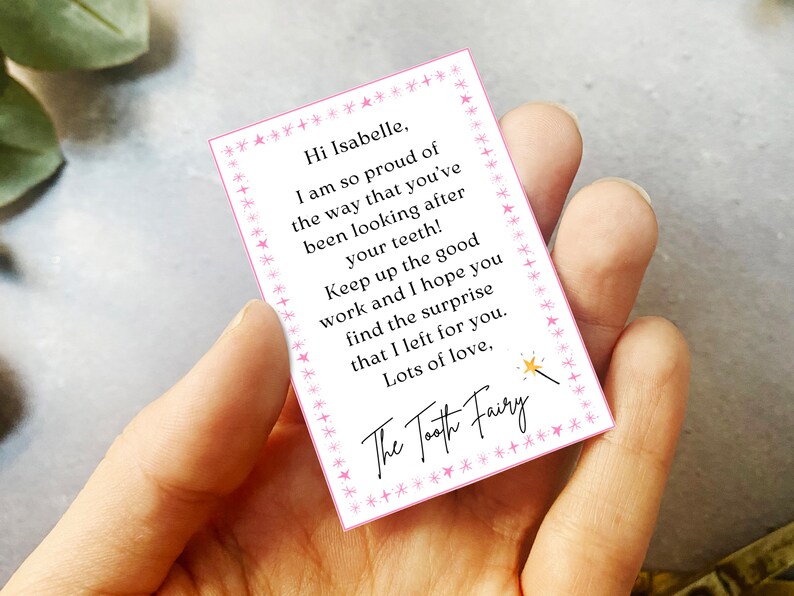 Hi Isabelle,
I am so proud of
the way that you've
been looking after
your teeth!
Keep up the good
work and I hope you
find the surprise
that I left for you.
Lots of love,
The Tooth Fairy